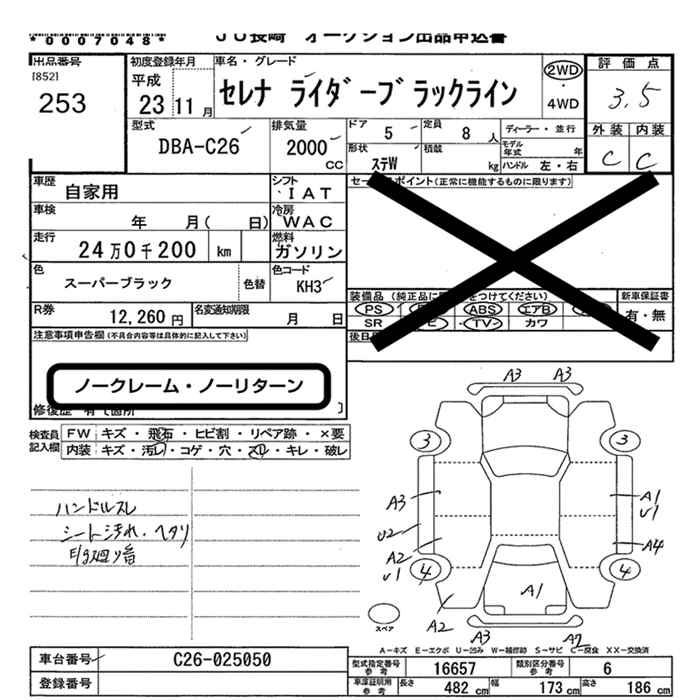 *0007048*
JU長崎 オークション出品申込書
出品番号 初度登録年月 車名・グレード 評価点
[852] 平成 2WD
253 23 11月 セレナ ライダーブラックライン ・ 3.5
4WD
型式 排気量 ドア 5 定員 8人 ディーラー・並行 外装 内装
DBA-C26 2000 CC 形状 ステW 積載 kg モデル年式 年 C C
ハンドル 左・右
車歴 自家用 シフト IAT セールスポイント(正常に機能するものに限ります)
車検 年 月( 日) 冷房 WAC
走行 24万0千200 km 燃料 ガソリン
色 スーパーブラック 色替 色コード KH3
装備品 (純正品に をつけてください) 新車保証書
R券 12,260円 名変通知期限 月 日 PS ABS エアB 有・無
SR TV カワ
注意事項申告欄(不具合内容等は具体的に記入して下さい) 後日
ノークレーム・ノーリターン
修復歴 有て箇所
検査員 FW キズ・飛石・ヒビ割・リペア跡・×要
記入欄 内装 キズ・汚レ・コゲ・穴・スレ・キレ・破レ
ハンドルスレ
シート汚れ・ヘタリ
A3 A3
3 3
A3 A1
U1
U2
A2 A4
U1
4 4
A1
A2
A3 A2
スペア
A-キズ E-エクボ U-凹み W-補修跡 S-サビ C-腐食 XX-交換済
車台番号 C26-025050 型式指定番号 参考 16657 類別区分番号 参考 6
登録番号 車庫証明用 参考 長さ 482 cm 幅 173 cm 高さ 186 cm